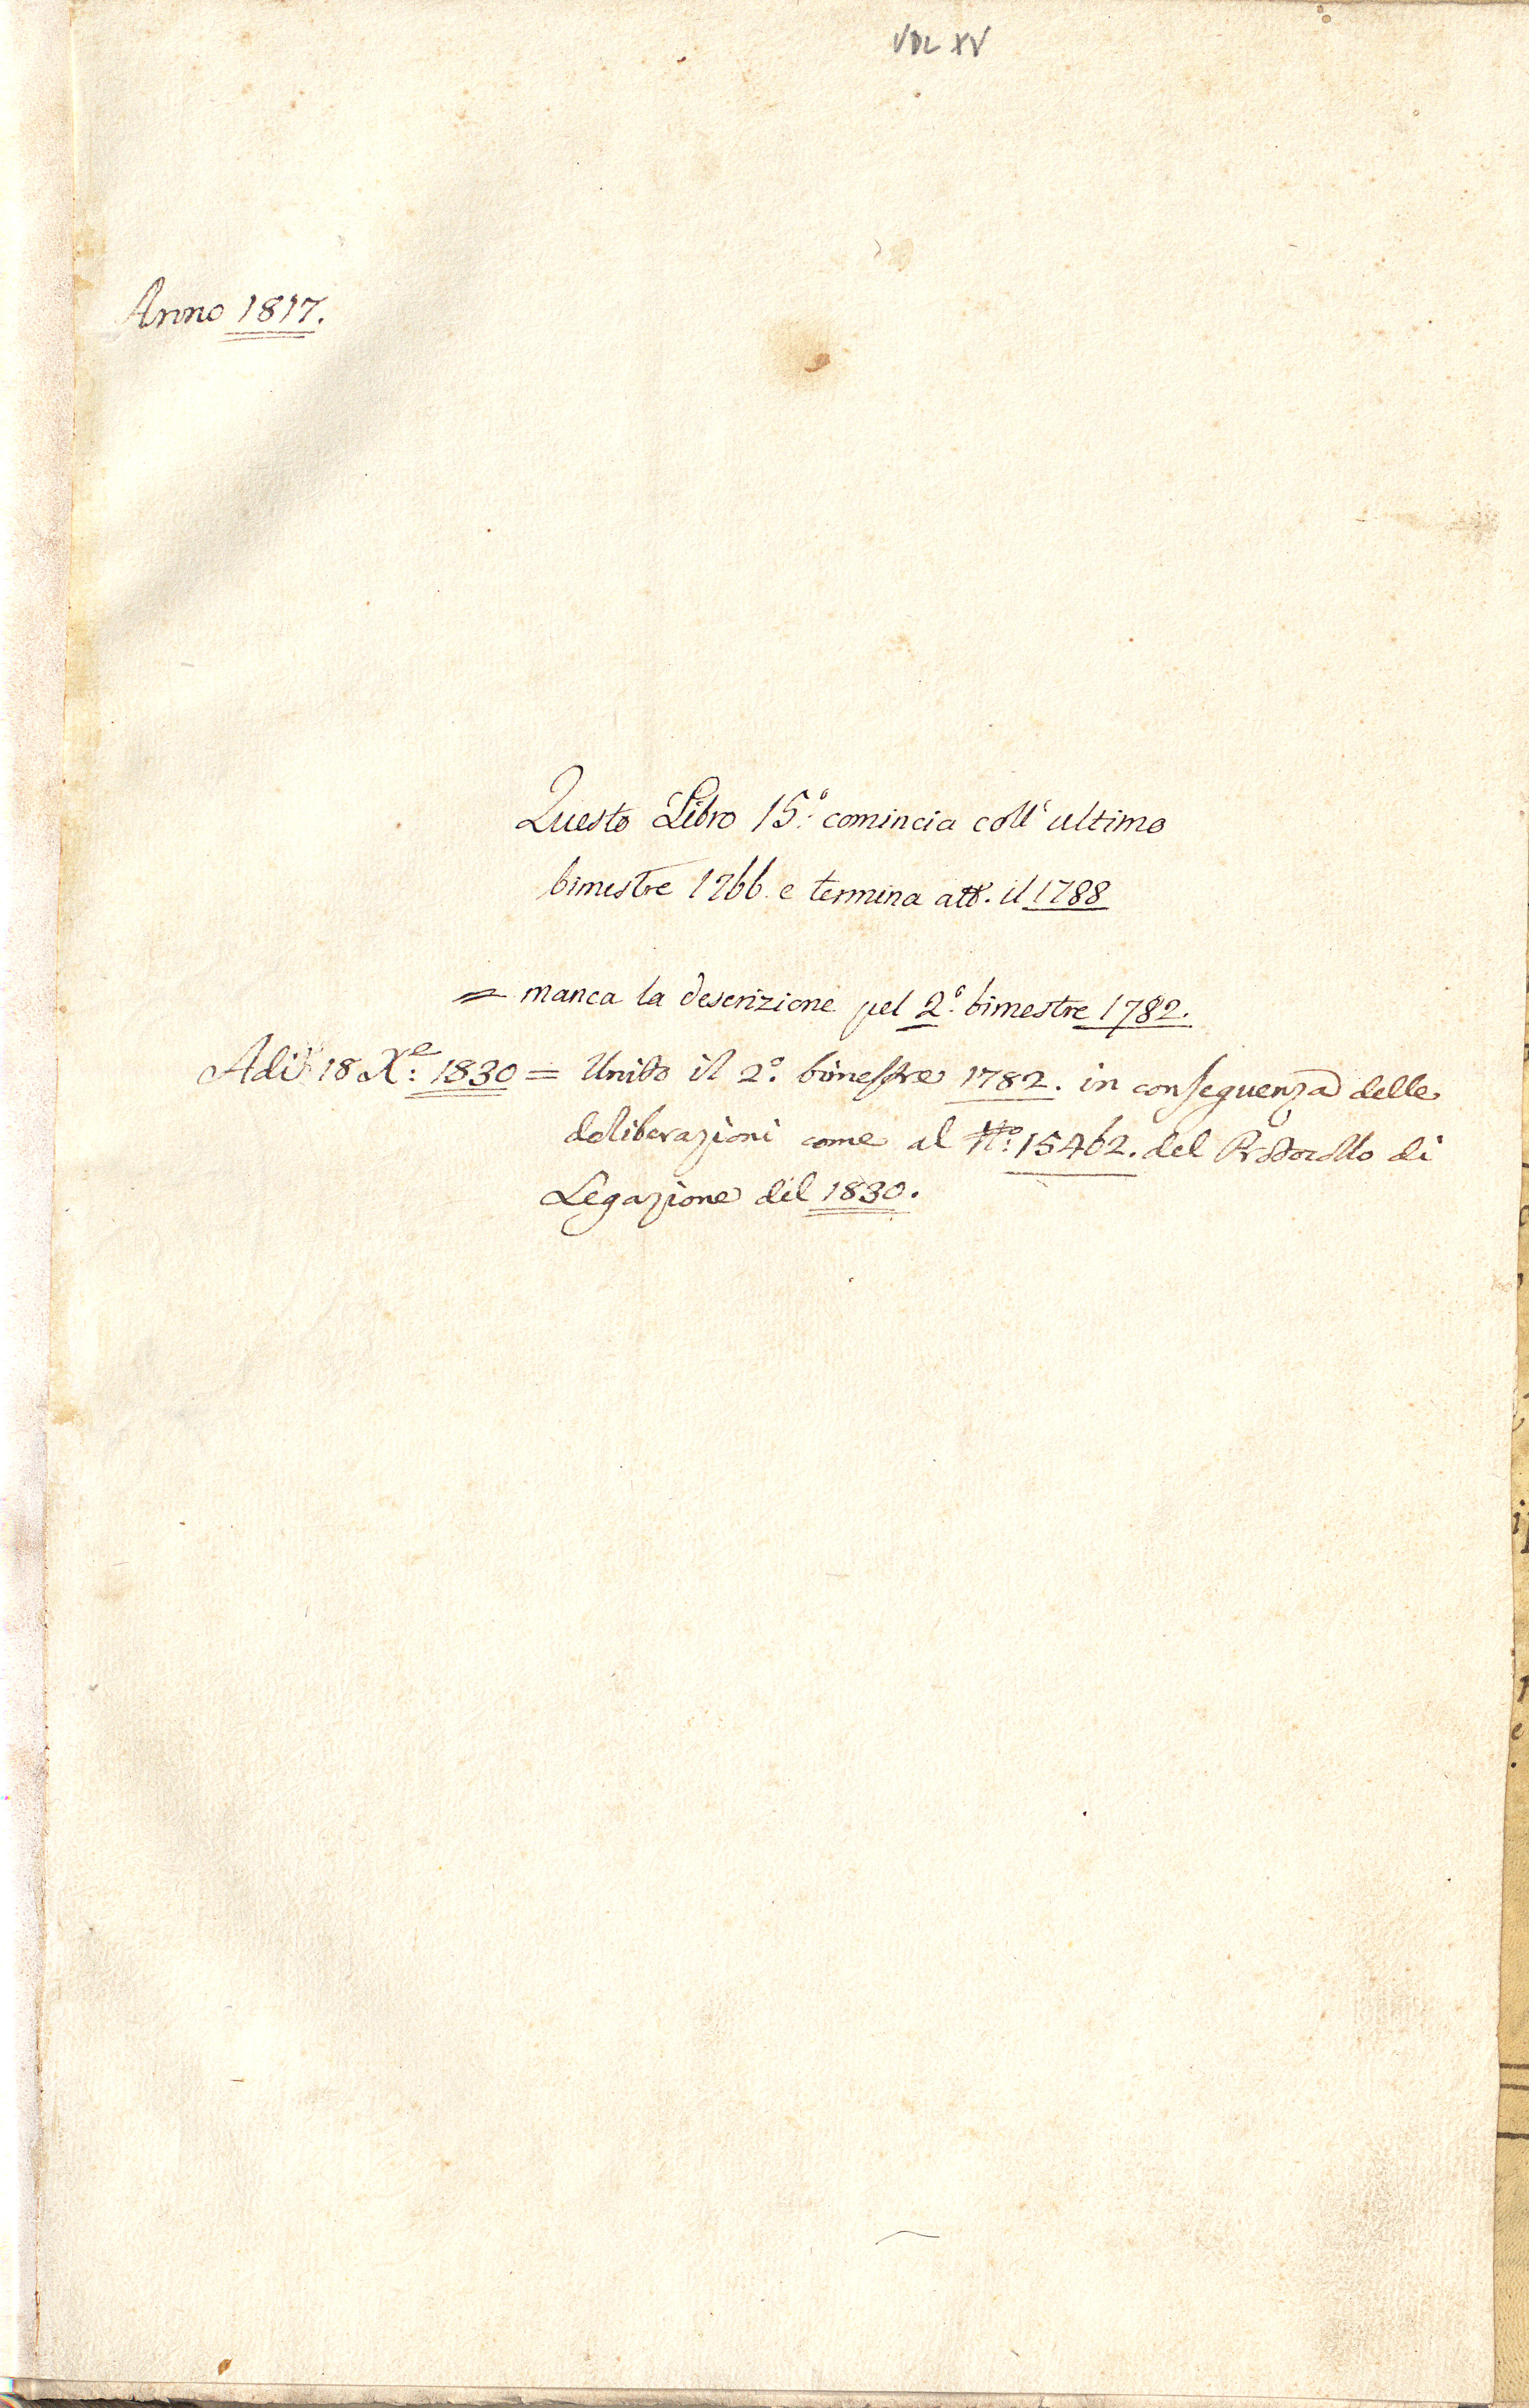 VOL XV
Anno 1817.
Questo Libro 15.º comincia coll'ultimo
bimestre 1766 e termina att.º il 1788
= manca la descrizione pel 2.º bimestre 1782.
Adi 18 Xe: 1830 = Unito il 2.º bimestre 1782. in conseguenza delle
deliberazioni come al Nº: 15462. del Protocollo di
Legazione del 1830.